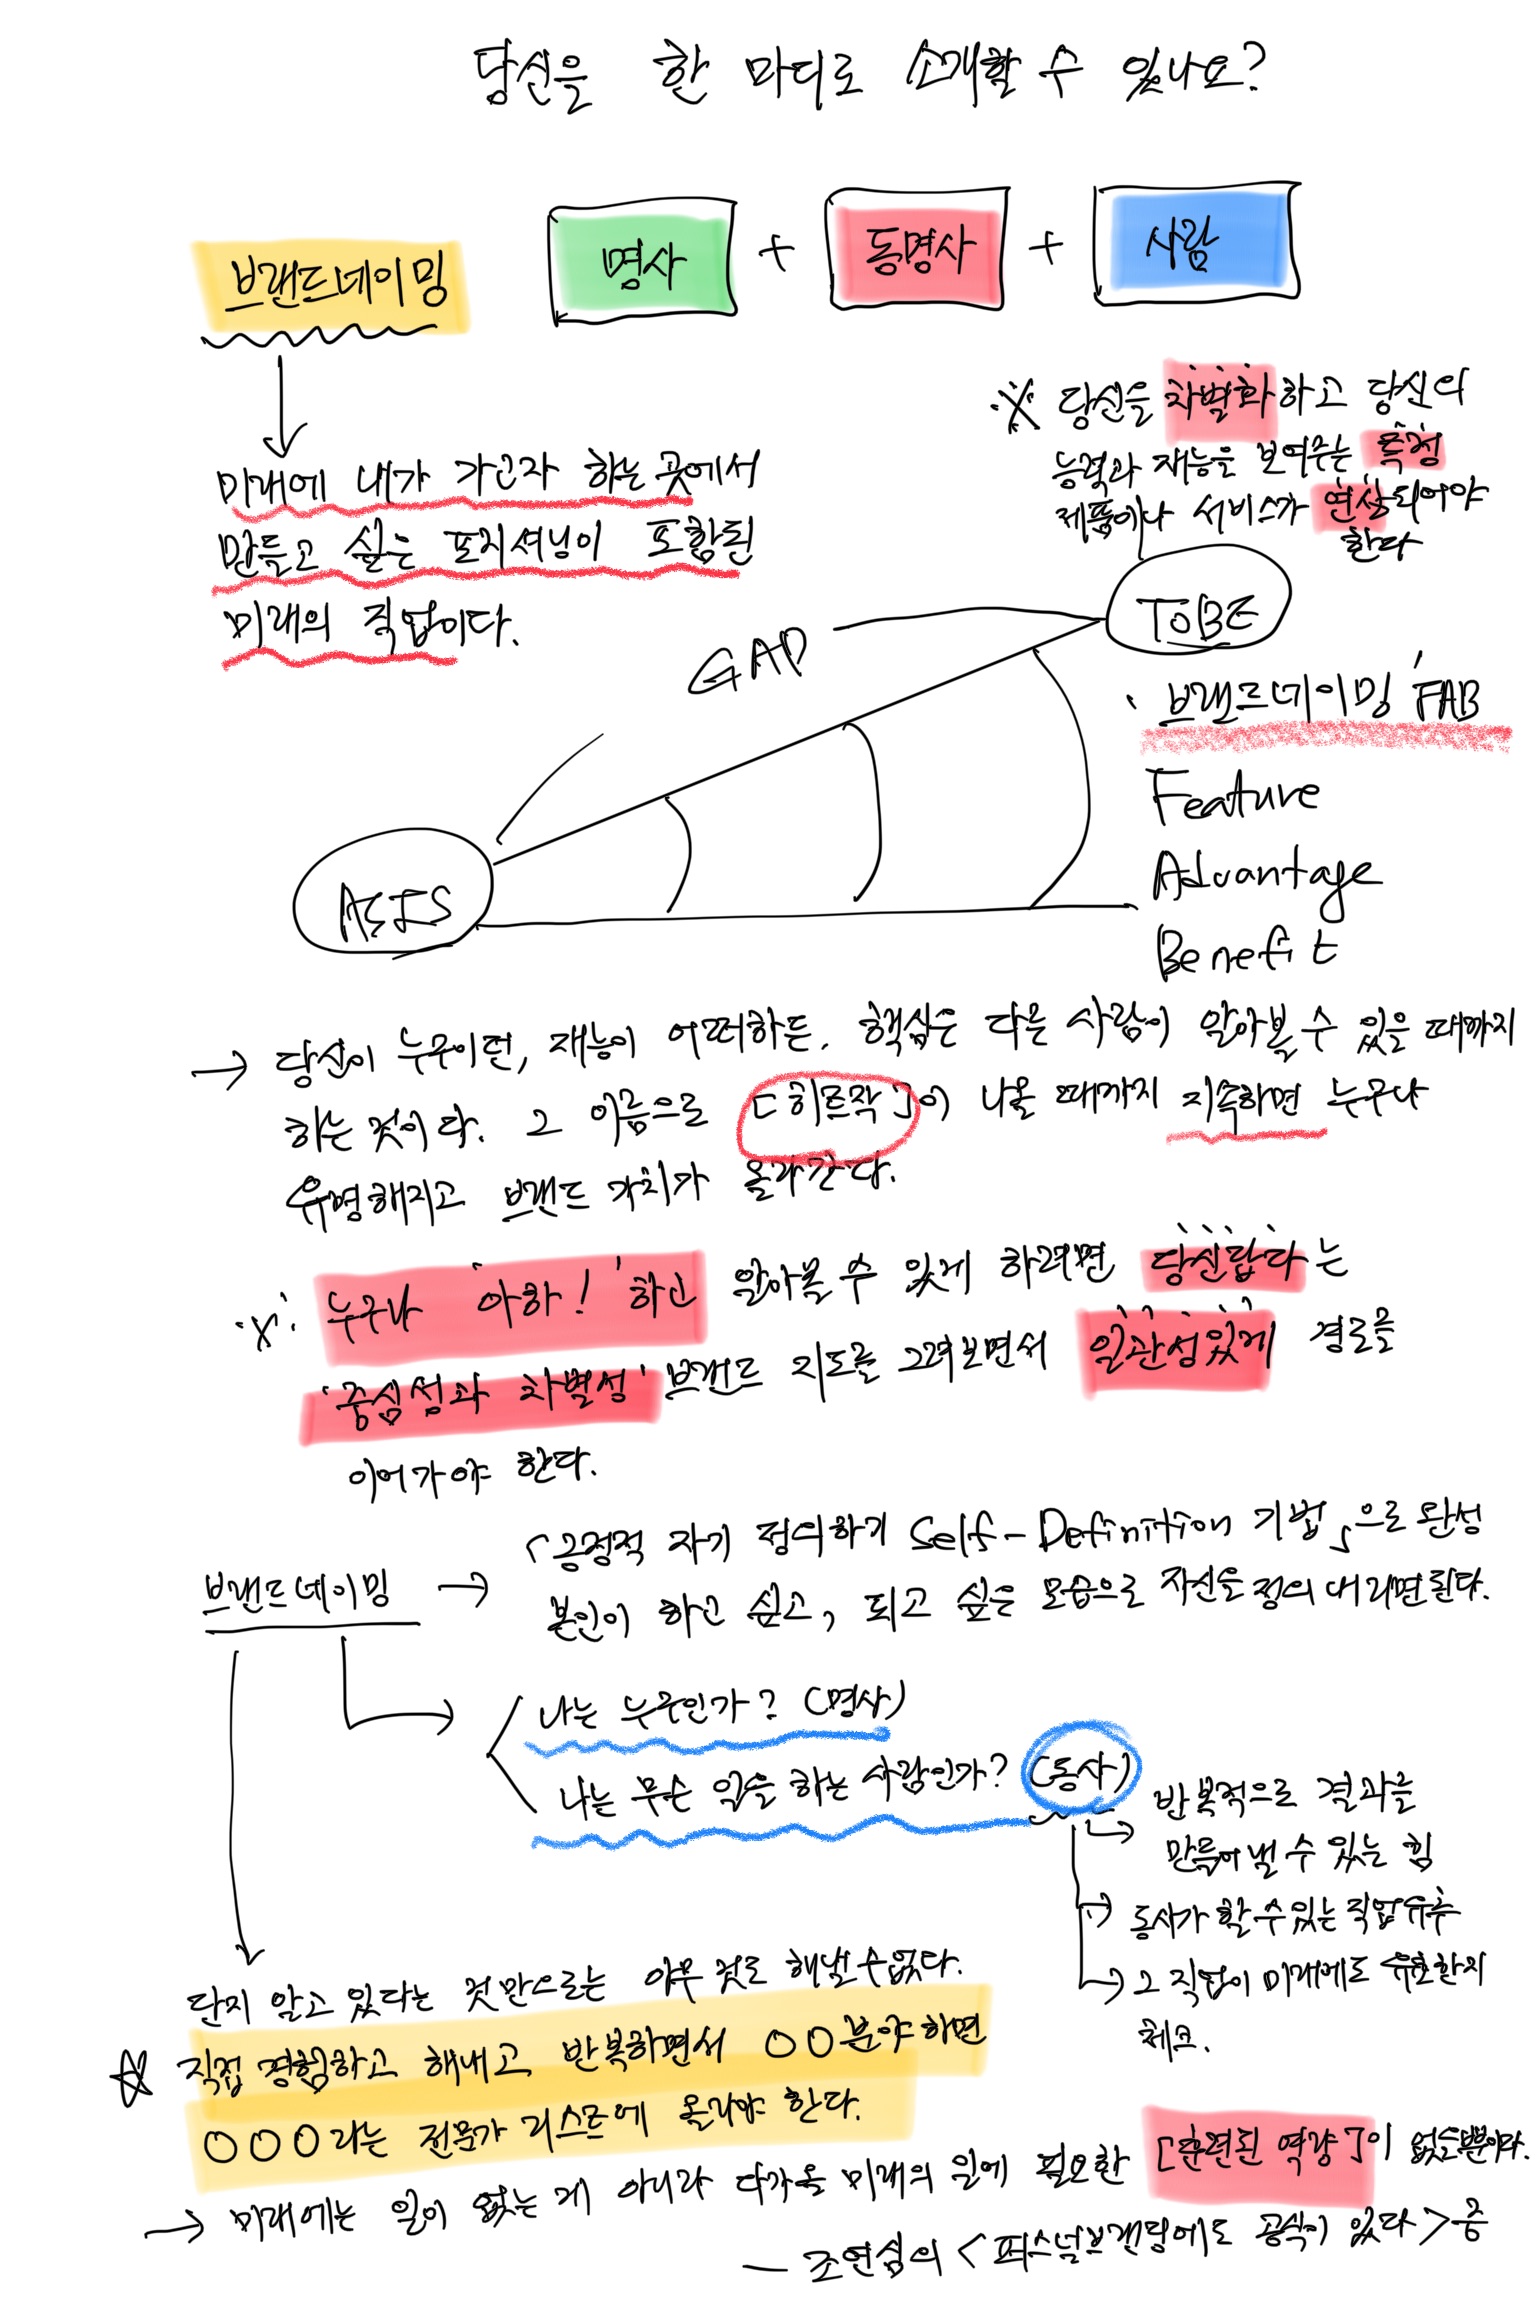 당신을 한 마디로 소개할 수 있나요?
브랜드네이밍
명사 + 동명사 + 사람
미래에 내가 가고자 하는 곳에서
만들고 싶은 포지셔닝이 포함된
미래의 직업이다.
※ 당신을 차별화하고 당신의
능력과 재능을 보여주는 특정
제품이나 서비스가 연상되어야
한다
GAP
TOBE
ASIS
· 브랜드네이밍 'FAB
Feature
Advantage
Benefit
→ 당신이 누구이던, 재능이 어떠하든. 핵심은 다른 사람이 알아볼 수 있을 때까지
하는 것이다. 그 이름으로 [히트작]이 나올 때까지 지속하면 누구나
유명해지고 브랜드 가치가 올라간다.
※ 누구나 '아하!' 하고 알아볼 수 있게 하려면 당신답다는
'중심성과 차별성' 브랜드 지도를 그려보면서 일관성있게 경로를
이어가야 한다.
브랜드네이밍 → 「긍정적 자기 정의하기 Self-Definition 기법」으로 완성
본인이 하고 싶고, 되고 싶은 모습으로 자신을 정의 내리면 된다.
나는 누구인가? (명사)
나는 무슨 일을 하는 사람인가? (동사)
→ 반복적으로 결과를
만들어 낼 수 있는 힘
→ 동사가 할 수 있는 직업 유추
→ 그 직업이 미래에도 유효한지
체크.
단지 알고 있다는 것 만으로는 아무 것도 해낼 수 없다.
☆ 직접 경험하고 해내고 반복하면서 ○○분야 하면
○○○라는 전문가 리스트에 올라야 한다.
→ 미래에는 일이 없는 게 아니라 다가올 미래의 일에 필요한 [훈련된 역량]이 없을 뿐이다.
- 조연심의 <퍼스널브랜딩에도 공식이 있다> 중